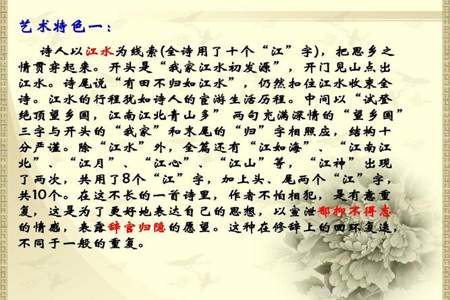 艺术特色一：
诗人以江水为线索(全诗用了十个“江”字)，把思乡之
情贯穿起来。开头是“我家江水初发源”，开门见山点出
江水。诗尾说“有田不归如江水”，仍然扣住江水收束全
诗。江水的行程犹如诗人的宦游生活历程。中间以“试登
绝顶望乡国，江南江北青山多” 两句充满深情的“望乡国”
三字与开头的“我家”和末尾的“归”字相照应，结构十
分严谨。除“江水”外，全篇还有“江如海”、“江南江
北”、“江月”、 “江心”、“江山”等，“江神”出现
了两次，共用了8个“江”字，加上头、尾两个“江”字，
共10个。在这不长的一首诗里，作者不怕相犯，是有意重
复，这是为了更好地表达自己的思想，以宣泄郁抑不得志
的情感，表露辞官归隐的愿望。这种在修辞上的回环复迭，
不同于一般的重复。